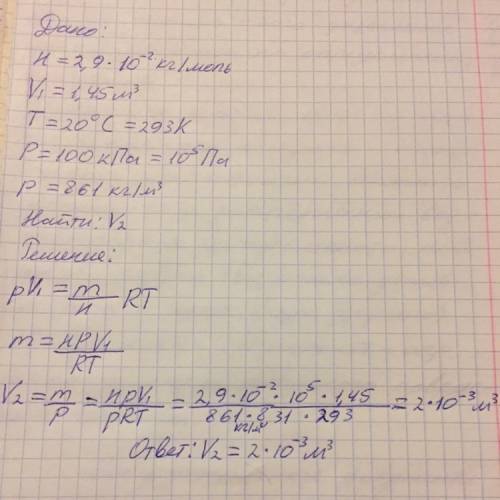 Дано:
M = 2,9 · 10⁻² кг/моль
V₁ = 1,45 м³
T = 20°C = 293K
P = 100 кПа = 10⁵ Па
ρ = 861 кг/м³
Найти: V₂
Решение:
pV₁ = m/M RT
m = MPV₁/RT
V₂ = m/ρ = MpV₁/ρRT = 2,9 · 10⁻² · 10⁵ · 1,45 / 861 кг/м³ · 8,31 · 293 = 2 · 10⁻³ м³
Ответ: V₂ = 2 · 10⁻³ м³